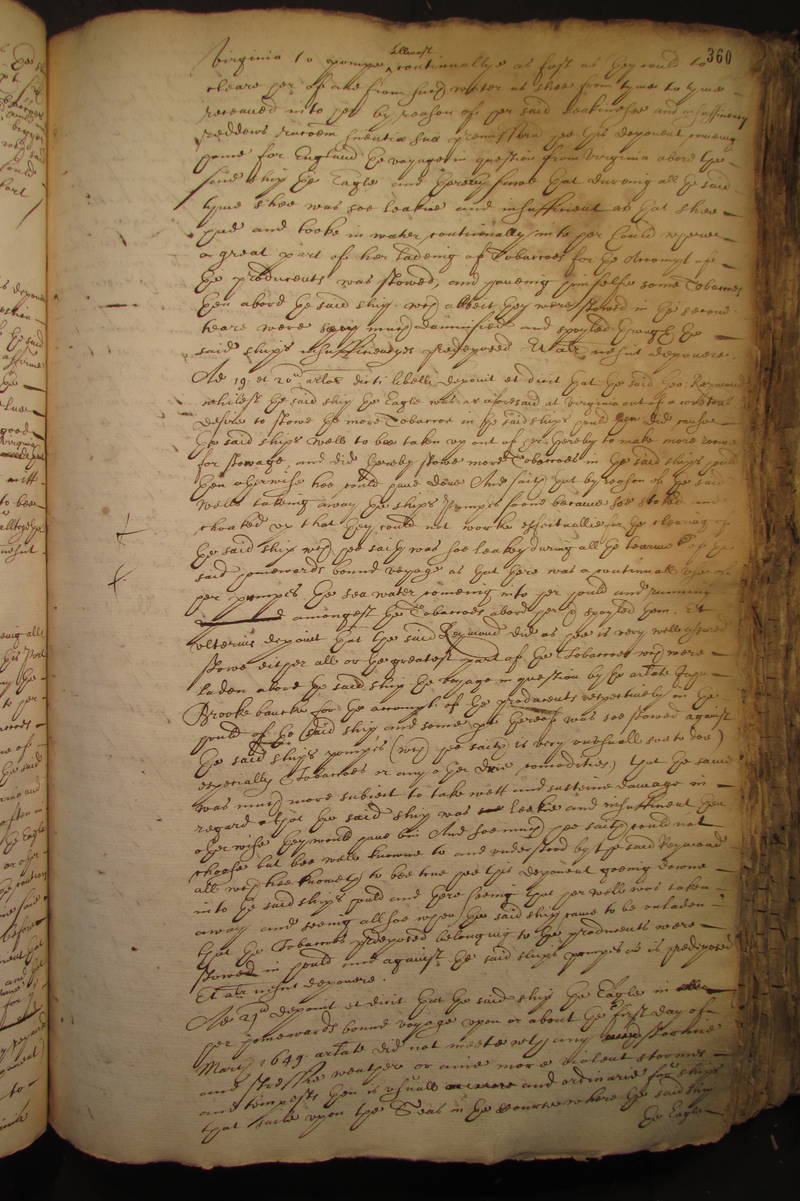 360
allmost
Virginia to pompe continuallye as fast as they could to
cleare her of and from such water as shee from tyme to tyme
receaved into her by reason of her said leakinesse and insufficiency
Reddens rationem scientiæ suæ præmissorum hee this deponent comeing
home for England the voyage in question from Virginia abord the
said ship the Eagle and thereby sawe that dureing all the said
tyme shee was soe leakie and insufficient as that shee
had and tooke in water continually into her hould where
a great part of her ladeing of Tobaccoes for the Accompt of
the producents was stowed, and haveing himselfe some Tobaccoes
then abord the said ship which albeit they were stowed in the second
teare were very much damnified and spoyled through the
said ships insufficiencyes predeposed Et aliter nescit deponere.
Ad 19 et 20 artlos dicti libelli deponit et dicit that the said Geo: Reymond
whilest the said ship the Eagle was as aforesaid at Virginia out of a
desire to stowe the more Tobaccoe in the said ships hould did cause
the said ships wells to bee taken up out of her thereby to make more roome
for stowage and did thereby stowe more Tobaccoes in the said ships hould
then otherwise hee could have done And saith that by reason of the said
wells taking away the ships pumps soone became soe stoked and
choaked up that they could not worke effectuallie for the cleering of
the said ship which hee saith was soe leakey during all the tearme of the
said homewards bound voyage as that there was a continuall use of
her pumpes the sea water comeing into her hould and running
amongest the Tobaccoes abord her and spoyled them. Et
ulterius deponit that the said Reymond did as hee is very well assured
stowe either all or the greatest part of the Tobaccoes which were
laden abord the said ship the voyage in question by the artlate
Brooke bancke for the accompt of the producents respectively in the
hould of the said ship and some part thereof was soe stowed against
the said ships pompes (which hee saith is very unusuall soe to doe)
especially Tobaccoes or any other drie comodities, that the same
was much more subiect to take wett and susteine damage in
regard that the said ship was leakie and insufficient then
otherwise they would have bin And soe much hee saith could not
choose but bee well knowne to and understood by the said Reymond
all which hee knoweth to bee true hee this deponent goeing downe
into the said ships hould and there seeing that her wells was taken
away and seeing allsoe when the said ship came to be unladen
that the Tobaccoes predeposed belonging to the producents were
stowed in hould and against the said ships pompes as is predeposed
Et aliter nescit deponere.
Ad 21 deponit et dicit that the said ship the Eagle in
her homewards bound voyage upon or about the first day of
March 1649 artlate did not meete with any such storme
and weather or anie more violent stormes
and tempests then is usuall and ordinarie for ships
that saile upon the Seas in the course where the said ship
the Eagle